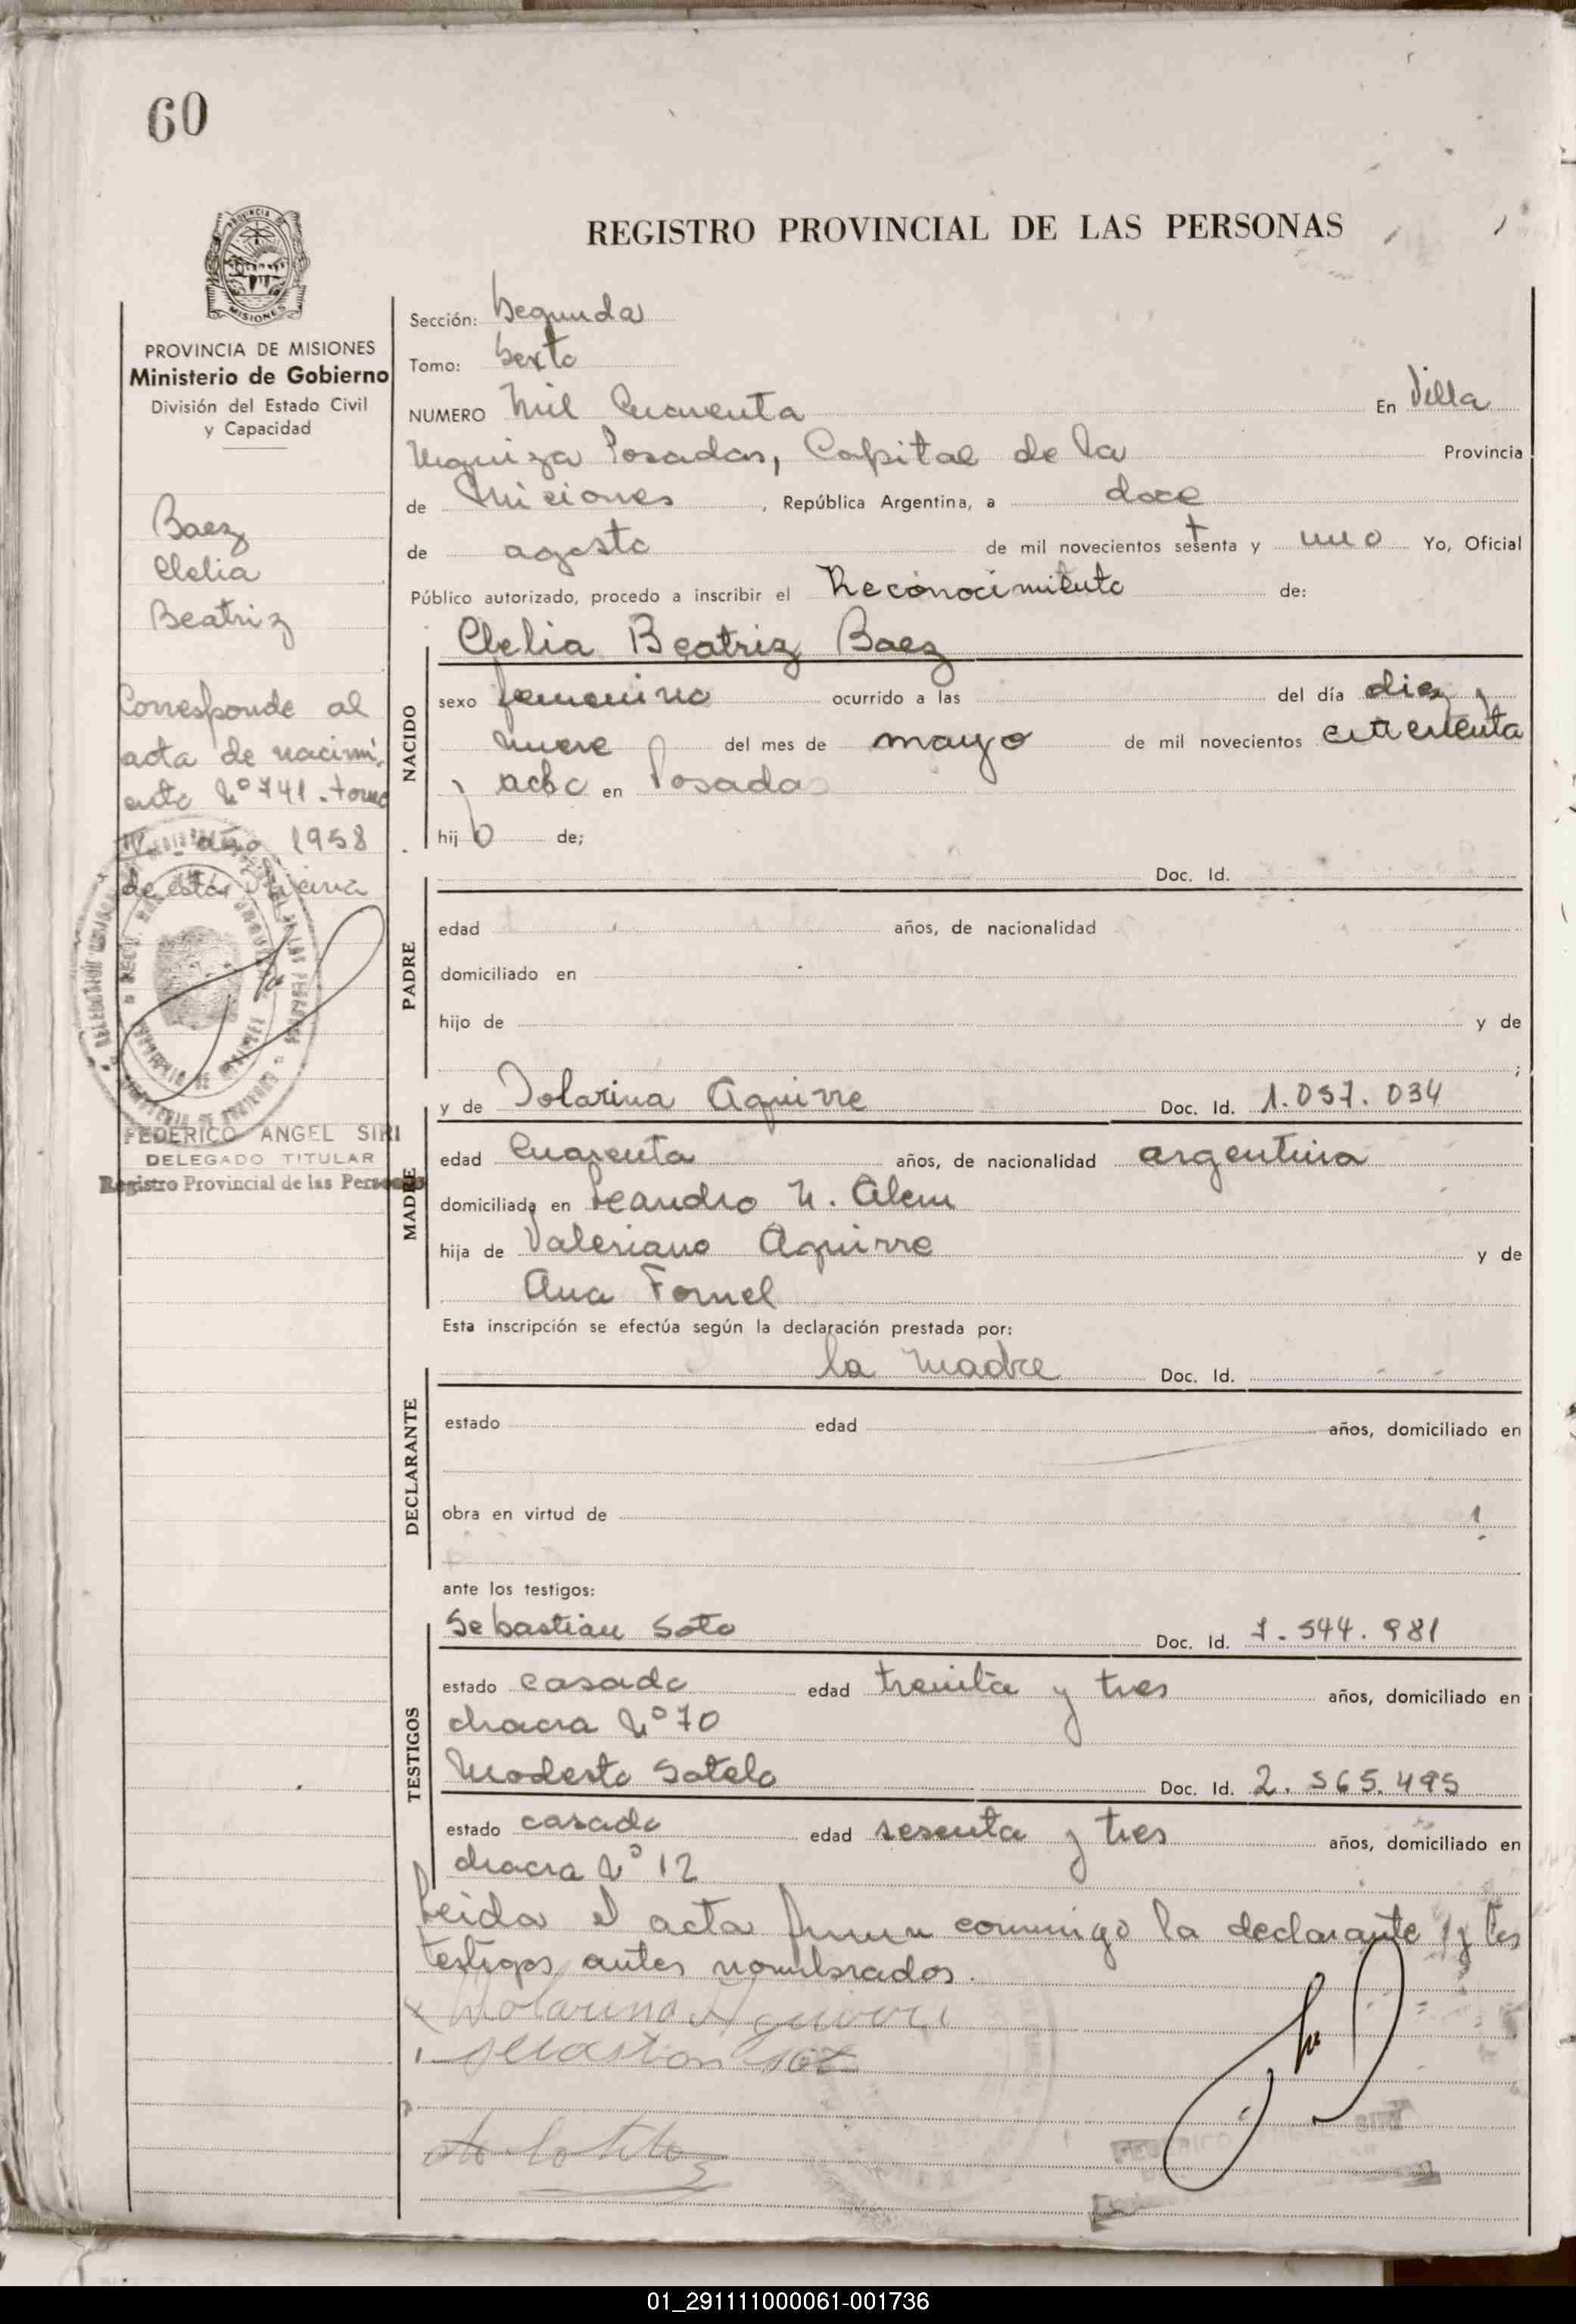 60
REGISTRO PROVINCIAL DE LAS PERSONAS
MISIONES
PROVINCIA DE MISIONES
Ministerio de Gobierno
División del Estado Civil
y Capacidad
Baez
Clelia
Beatriz
Corresponde al
acta de nacimi-
ento Nº 741. tomo
año 1958
de esta Oficina
FEDERICO ANGEL SIRI
DELEGADO TITULAR
Registro Provincial de las Personas
Sección: Segunda
Tomo: Sexto
NUMERO Mil Cuarenta En Villa
Urquiza Posadas, Capital de la Provincia
de Misiones, República Argentina, a doce
de agosto de mil novecientos setenta y uno Yo, Oficial
Público autorizado, procedo a inscribir el Reconocimiento de:
Clelia Beatriz Baez
NACIDO
sexo femenino ocurrido a las del día diez y
nueve del mes de mayo de mil novecientos cincuenta
y ocho en Posadas
hij de;
Doc. Id.
PADRE
edad años, de nacionalidad
domiciliado en
hijo de y de
;
MADRE
y de Dolarina Aguirre Doc. Id. 1.057.034
edad Cuarenta años, de nacionalidad argentina
domiciliada en Leandro N. Alem
hija de Valeriano Aguirre y de
Ana Fornel
Esta inscripción se efectúa según la declaración prestada por:
la Madre Doc. Id.
DECLARANTE
estado edad años, domiciliado en
obra en virtud de
ante los testigos:
TESTIGOS
Sebastian Soto Doc. Id. 7.544.981
estado casado edad treinta y tres años, domiciliado en
chacra Nº 70
Modesto Sotelo Doc. Id. 2.565.495
estado casado edad sesenta y tres años, domiciliado en
chacra Nº 12
Leida el acta firman conmigo la declarante y los
testigos antes nombrados.
Dolarina Aguirre
sebastian soto
FEDERICO ANGEL SIRI
01_291111000061-001736